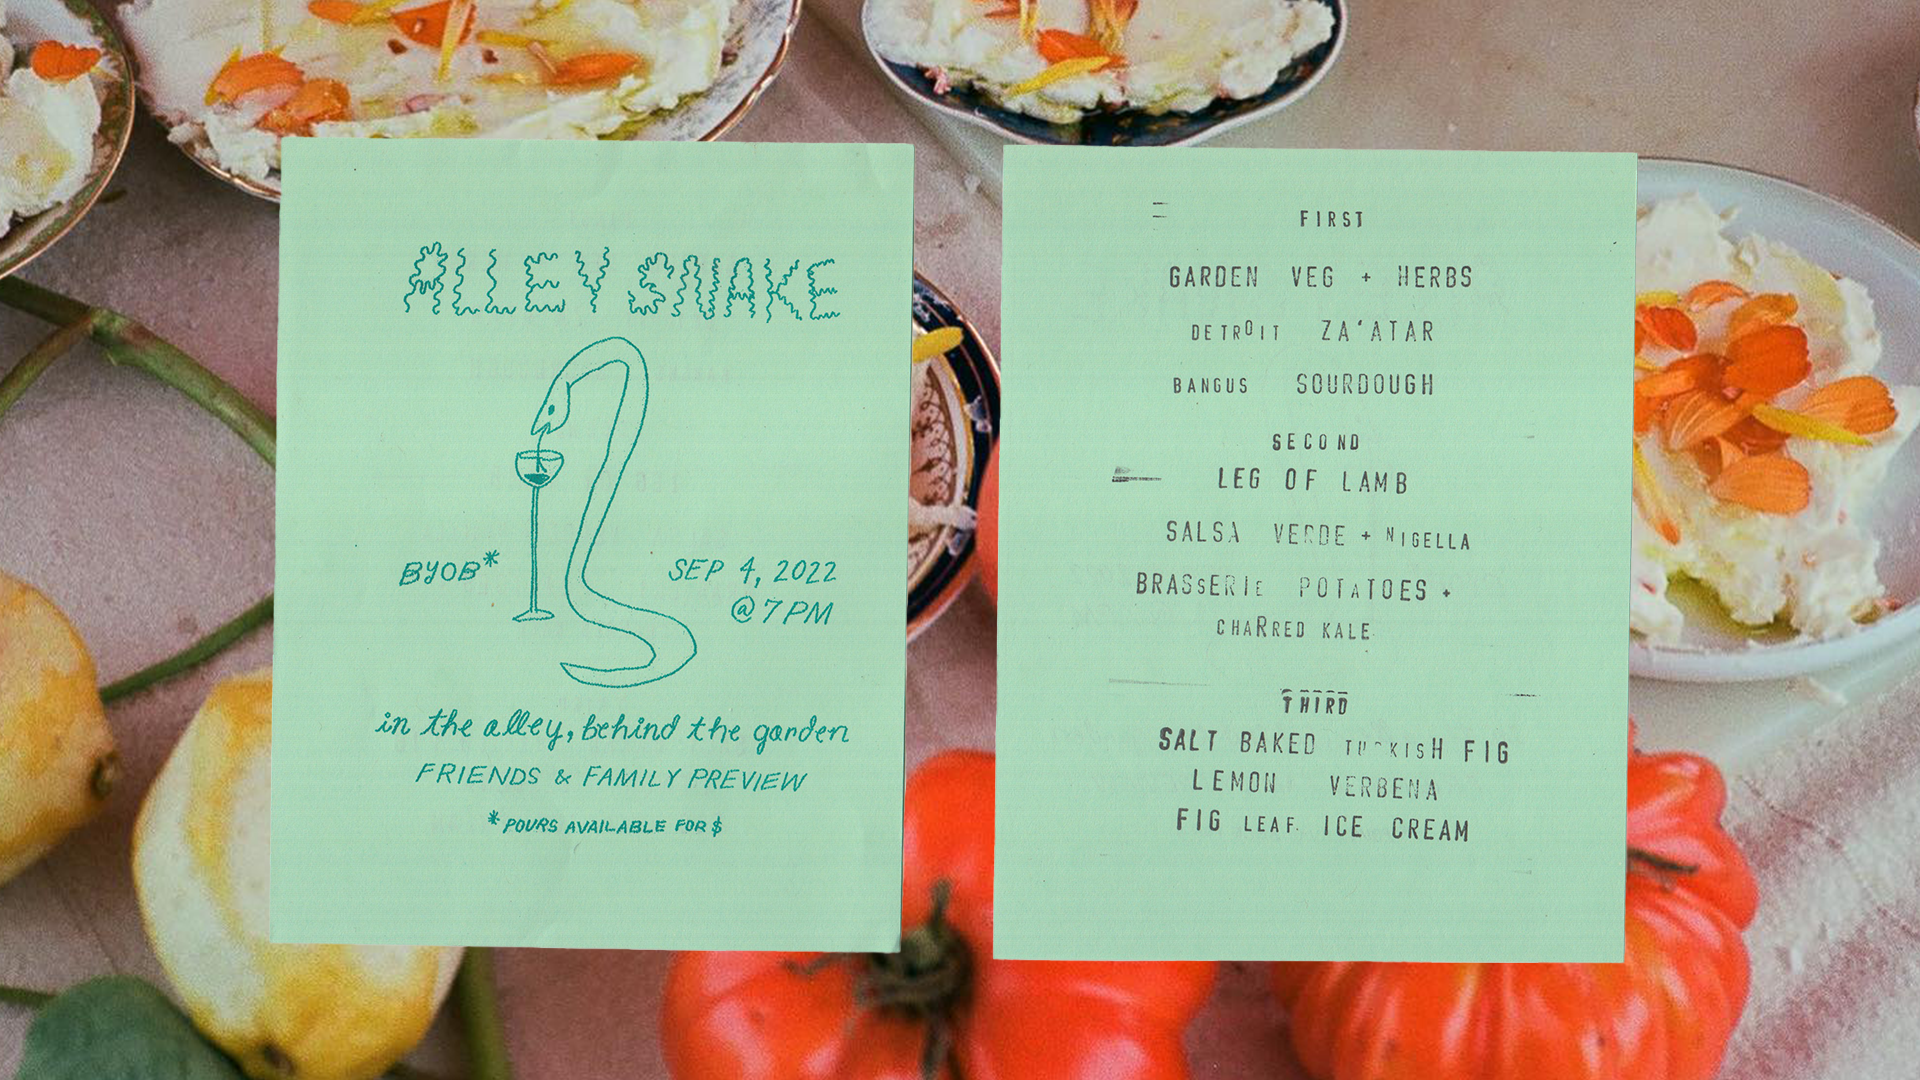 ALLEY SNAKE
BYOB*
SEP 4, 2022
@ 7 PM
in the alley, behind the garden
FRIENDS & FAMILY PREVIEW
*POURS AVAILABLE FOR $
FIRST
GARDEN VEG + HERBS
DETROIT ZA'ATAR
BANGUS SOURDOUGH
SECOND
LEG OF LAMB
SALSA VERDE + NIGELLA
BRASsERIE POTATOES +
CHARRED KALE
THIRD
SALT BAKED TURKISH FIG
LEMON VERBENA
FIG LEAF ICE CREAM